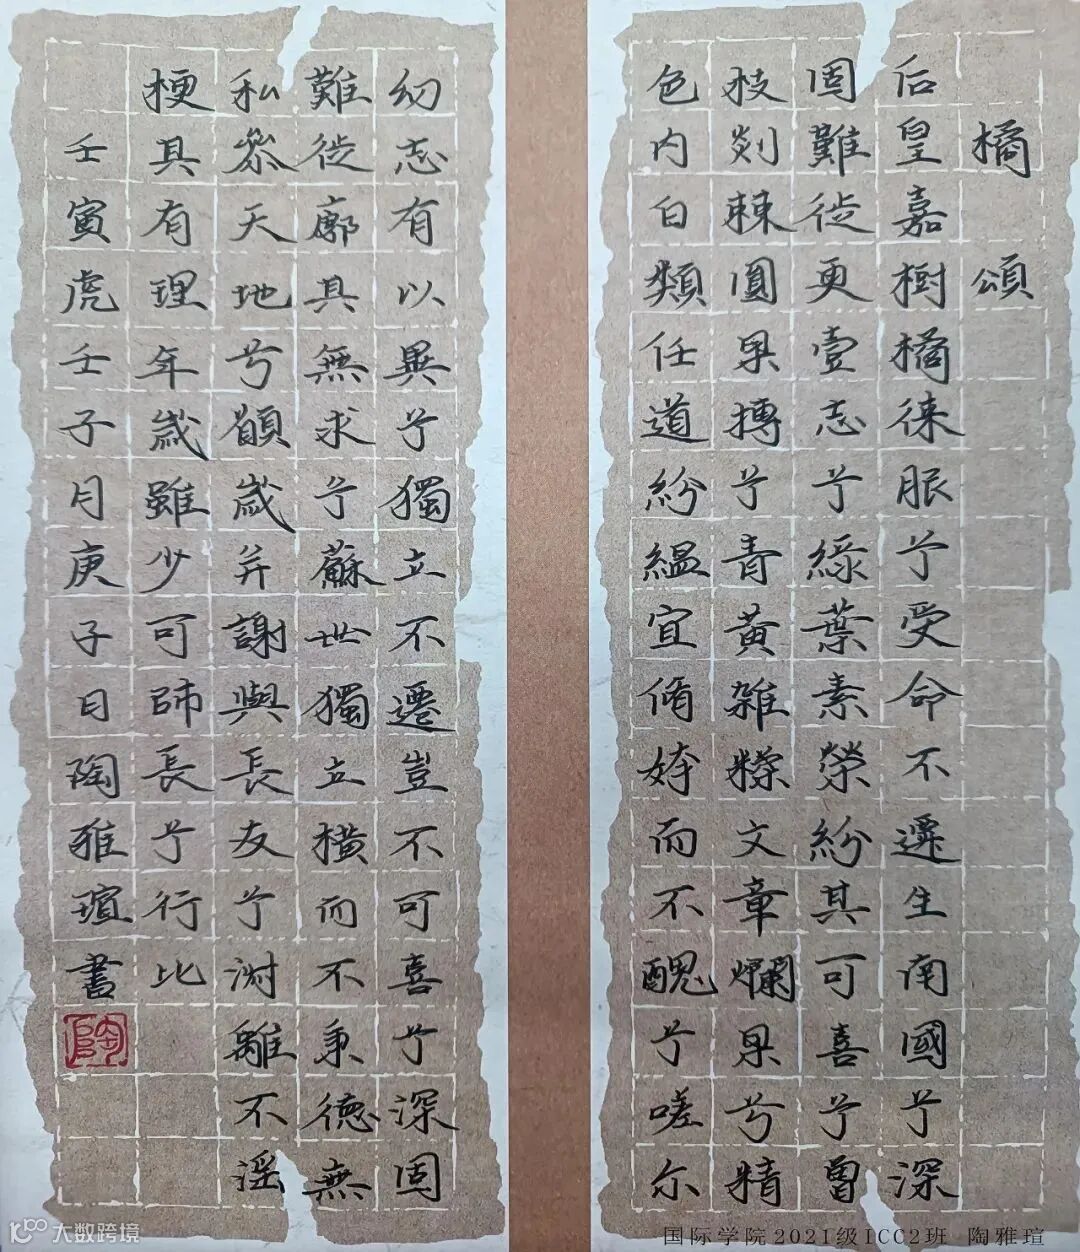 橘頌
后皇嘉樹橘徠服兮受命不遷生南國兮深
固難徙更壹志兮綠葉素榮紛其可喜兮曾
枝剡棘圓果摶兮青黃雜糅文章爛果兮精
色内白類任道紛緼宜脩姱而不醜兮嗟尔
幼志有以異兮獨立不遷豈不可喜兮深固
難徙廓其無求兮蘇世獨立橫而不秉德無
私叅天地兮願歲并謝與長友兮淑離不淫
梗其有理年歲雖少可師長兮行比
壬寅虎壬子月庚子日陶雅瑄書
陶
国际学院2021级ICC2班 陶雅瑄
大数跨境